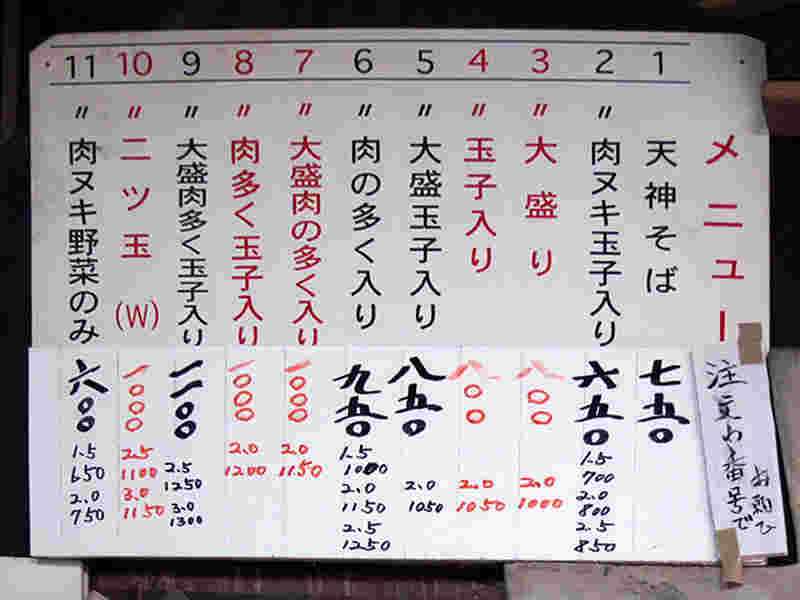 メニュー
1 天神そば 七五〇
2 〃 肉ヌキ玉子入り 六五〇 1.5 700 2.0 800 2.5 850
3 〃 大盛り 八〇〇 2.0 1000
4 〃 玉子入り 八〇〇 2.0 1050
5 〃 大盛玉子入り 八五〇 2.0 1050
6 〃 肉の多く入り 九五〇 1.5 1000 2.0 1150 2.5 1250
7 〃 大盛肉の多く入り 一〇〇〇 2.0 1150
8 〃 肉多く玉子入り 一〇〇〇 2.0 1200
9 〃 大盛肉多く玉子入り 一一〇〇 2.5 1250 3.0 1300
10 〃 二ツ玉(W) 一〇〇〇 2.5 1100 3.0 1150
11 〃 肉ヌキ野菜のみ 六〇〇 1.5 650 2.0 750
注文わ番号で
お願ひ